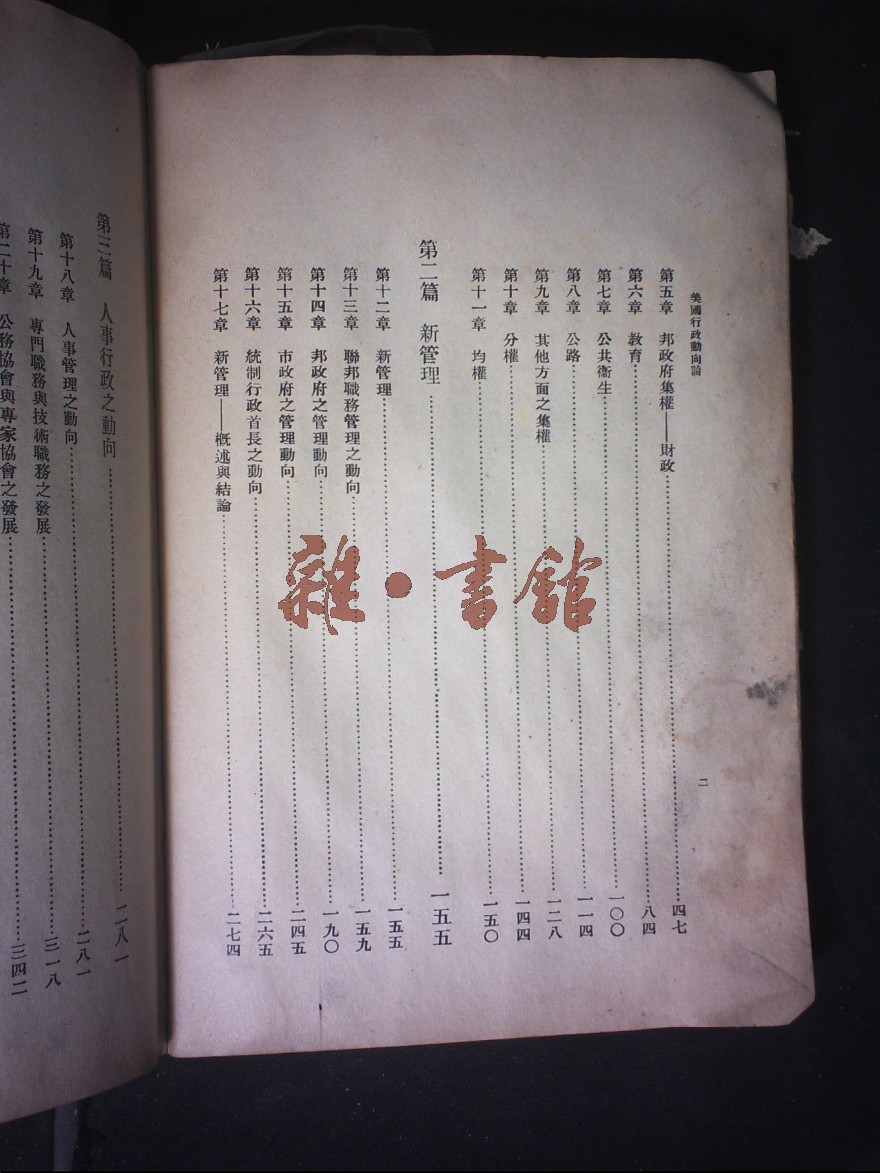 美國行政動向論
二
第五章 邦政府集權——財政 四七
第六章 教育 八四
第七章 公共衞生 一〇〇
第八章 公路 一一四
第九章 其他方面之集權 一二八
第十章 分權 一四四
第十一章 均權 一五〇
第二篇 新管理 一五五
第十二章 新管理 一五五
第十三章 聯邦職務管理之動向 一五九
第十四章 邦政府之管理動向 一九〇
第十五章 市政府之管理動向 二四五
第十六章 統制行政首長之動向 二六五
第十七章 新管理——概述與結論 二七四
第三篇 人事行政之動向 二八一
第十八章 人事管理之動向 二八一
第十九章 專門職務與技術職務之發展 三一八
第二十章 公務協會與專家協會之發展 三四二
雜·書館